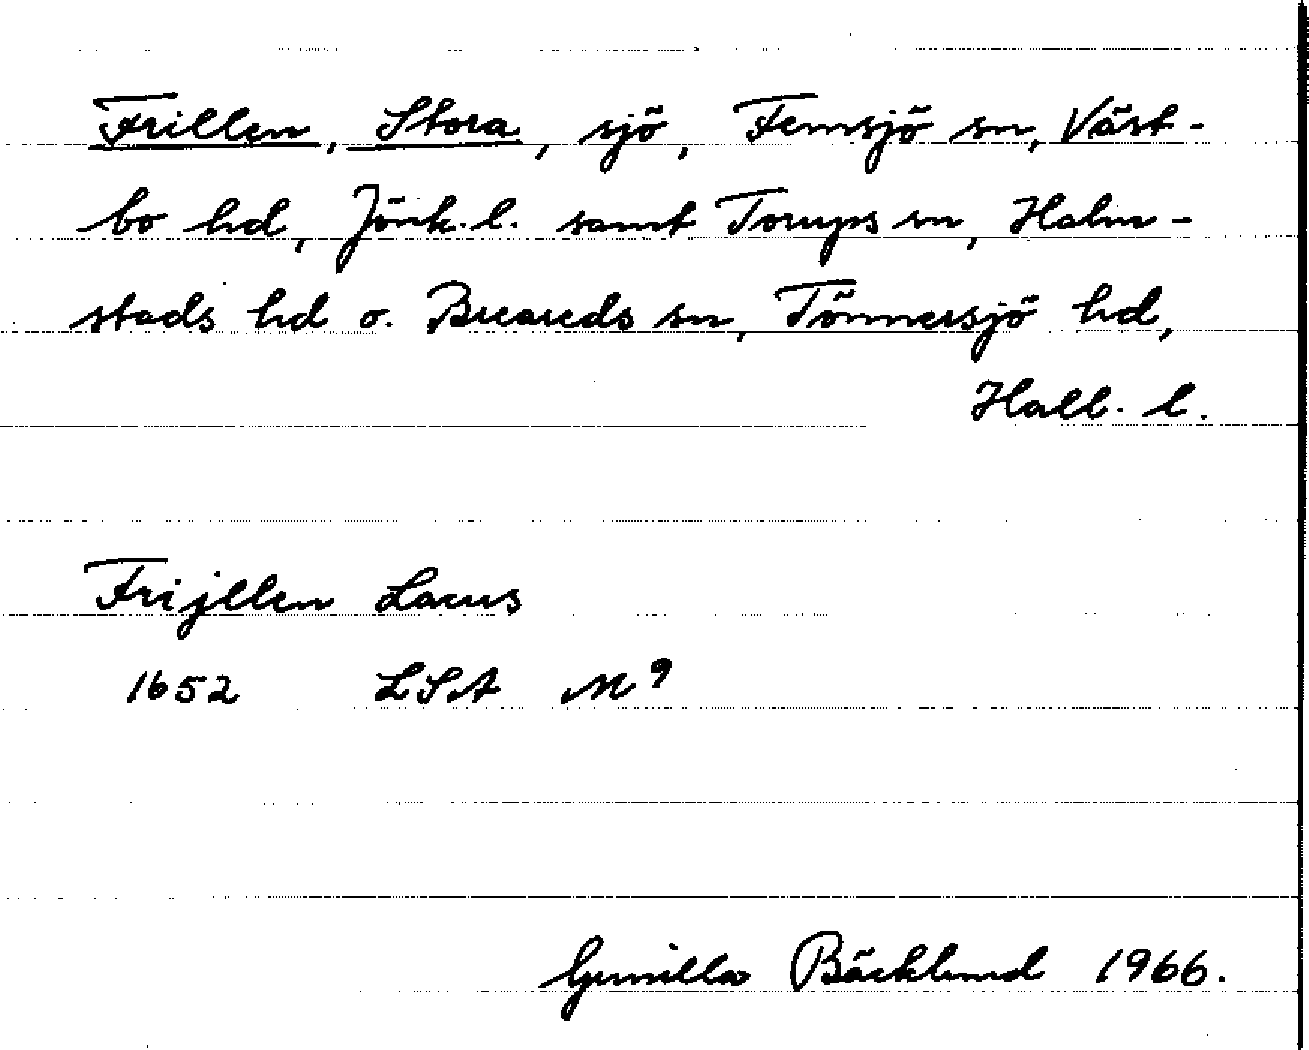 Frillen, Stora, sjö, Femsjö sn, Väst-
bo hd, Jönk. l. samt Torups sn, Halm-
stads hd o. Breareds sn, Tönnersjö hd,
Hall. l.
Frijllen Lacus
1652 LSA M 9
Gunilla Bäcklund 1966.